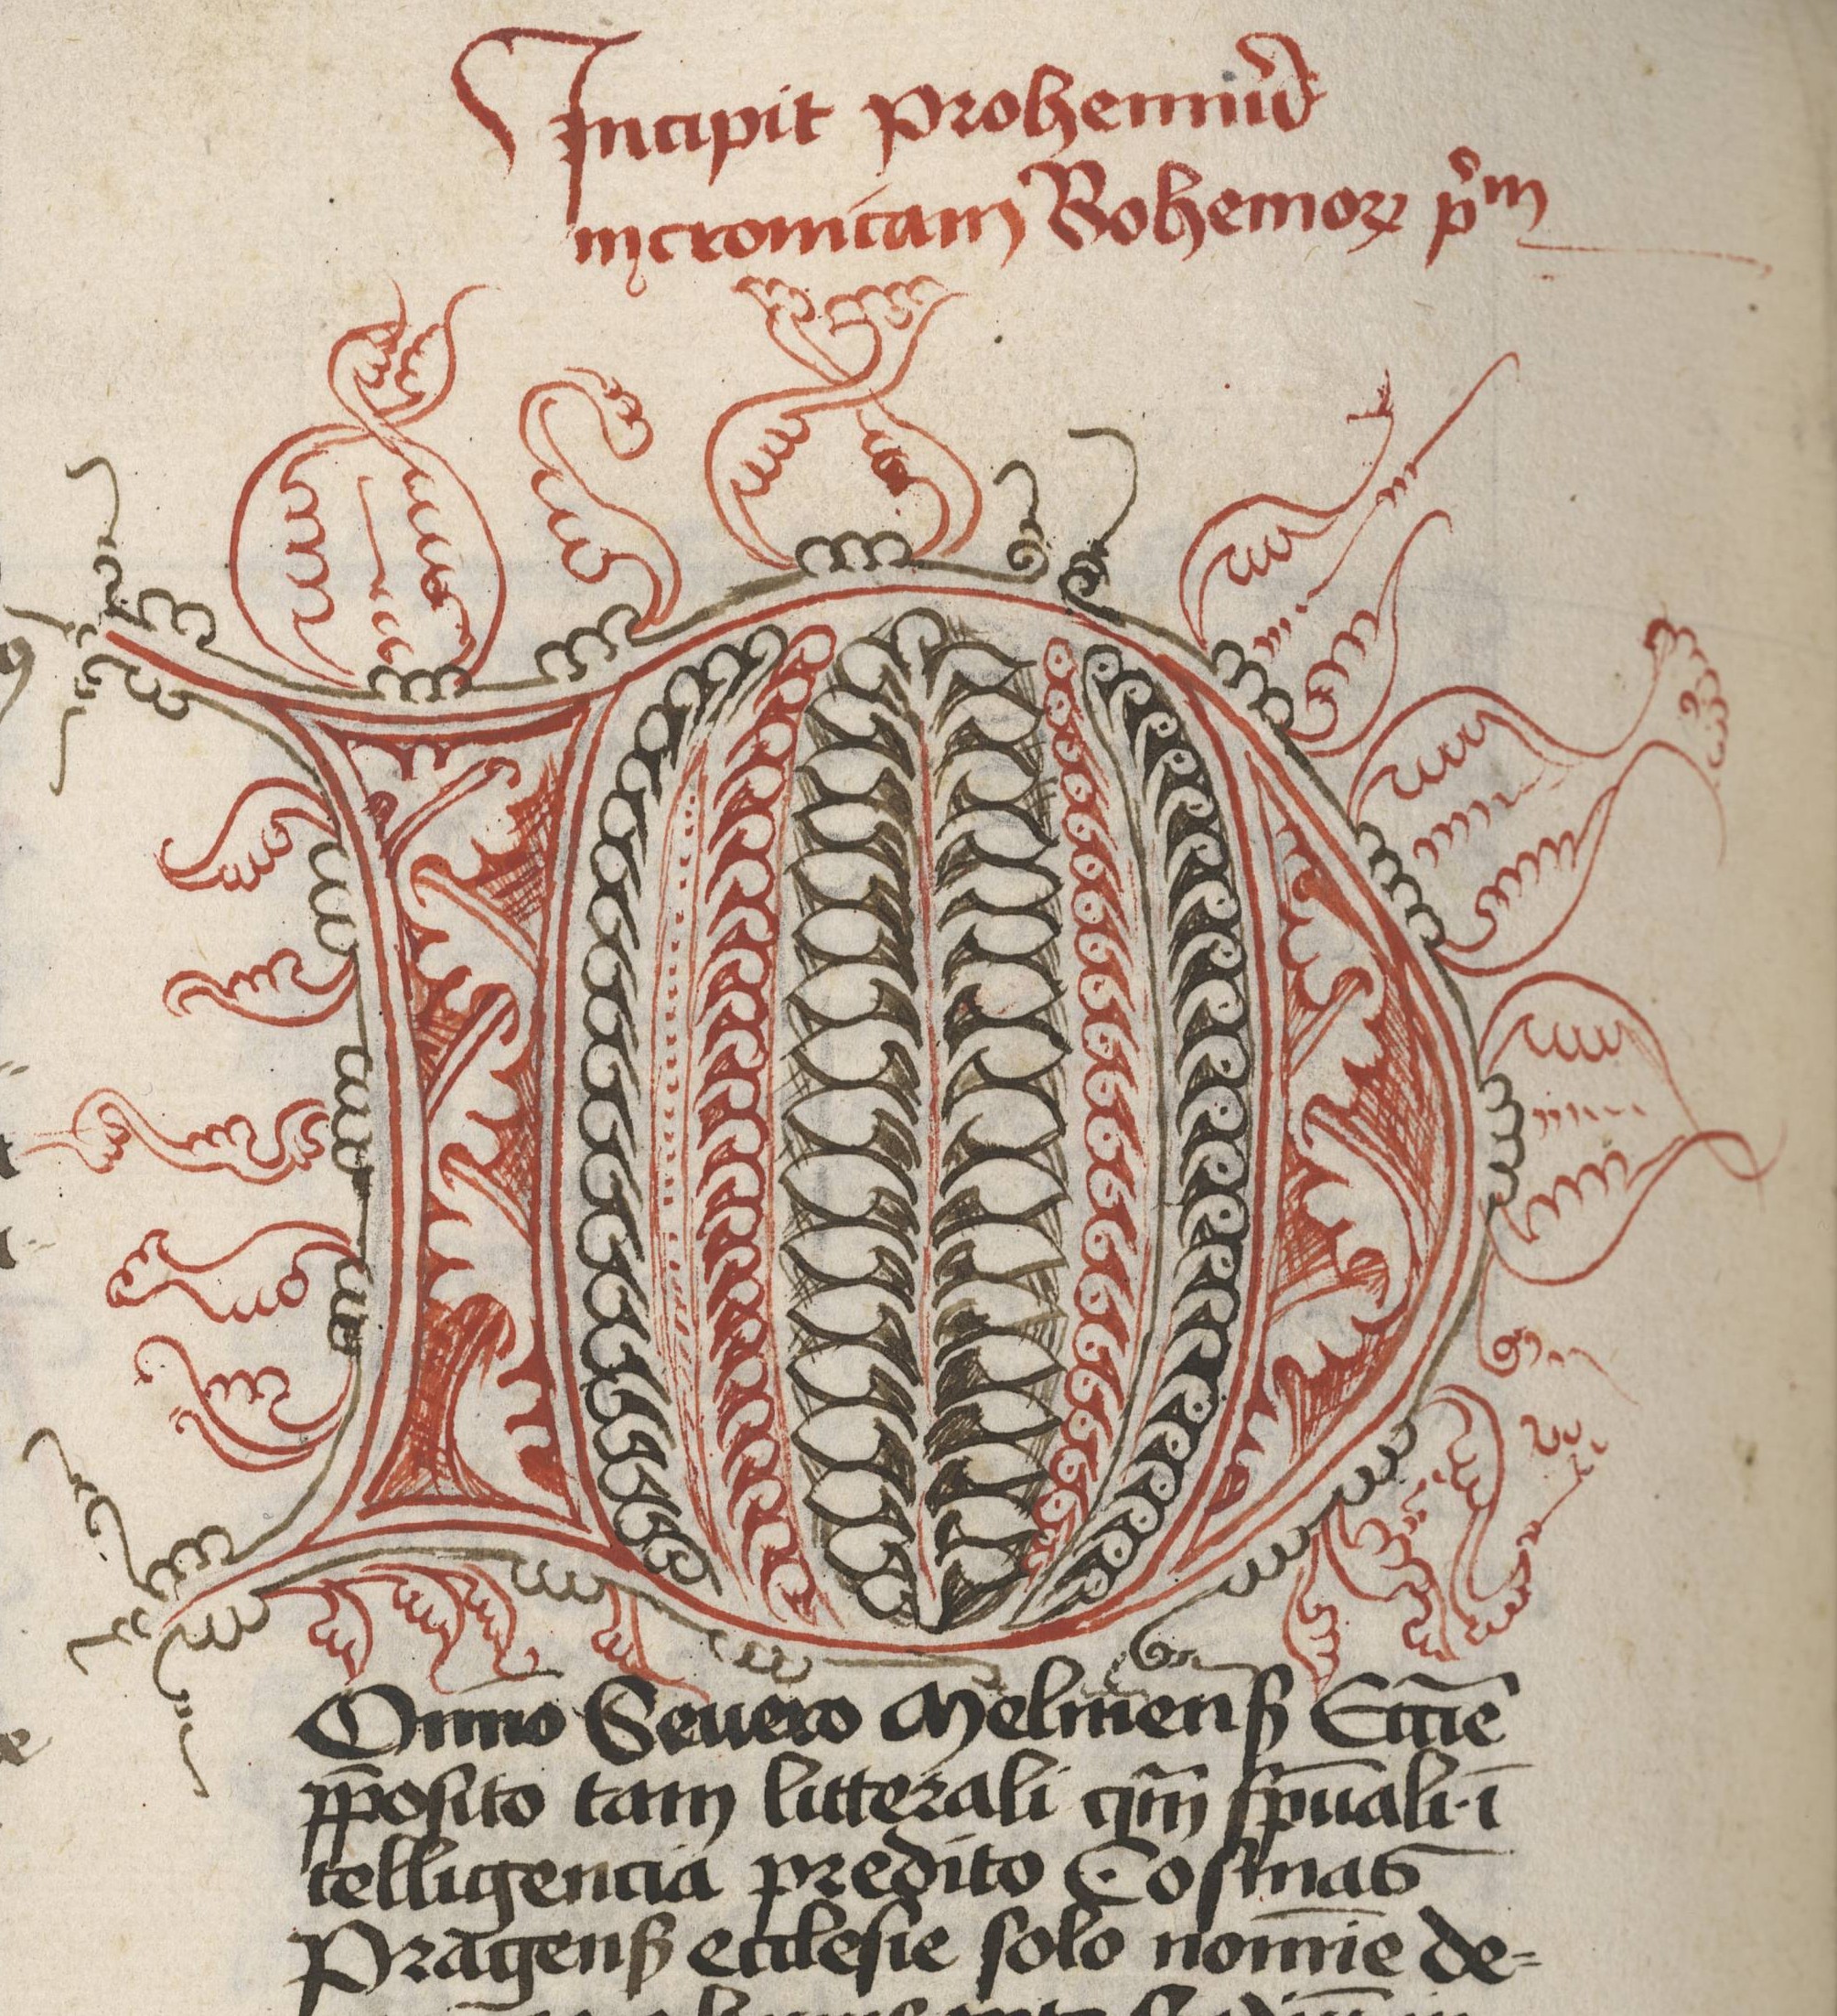 Incipit Prohemiū
in cronicam Bohemorꝝ pͥm
D
Om̄no Seuero Melnicenß Eccīe
p̄posito tam litterali qm̄ sp̄uali · ī
telligencia predito Cosmas
Pragenß ecclesie solo nomīe de=